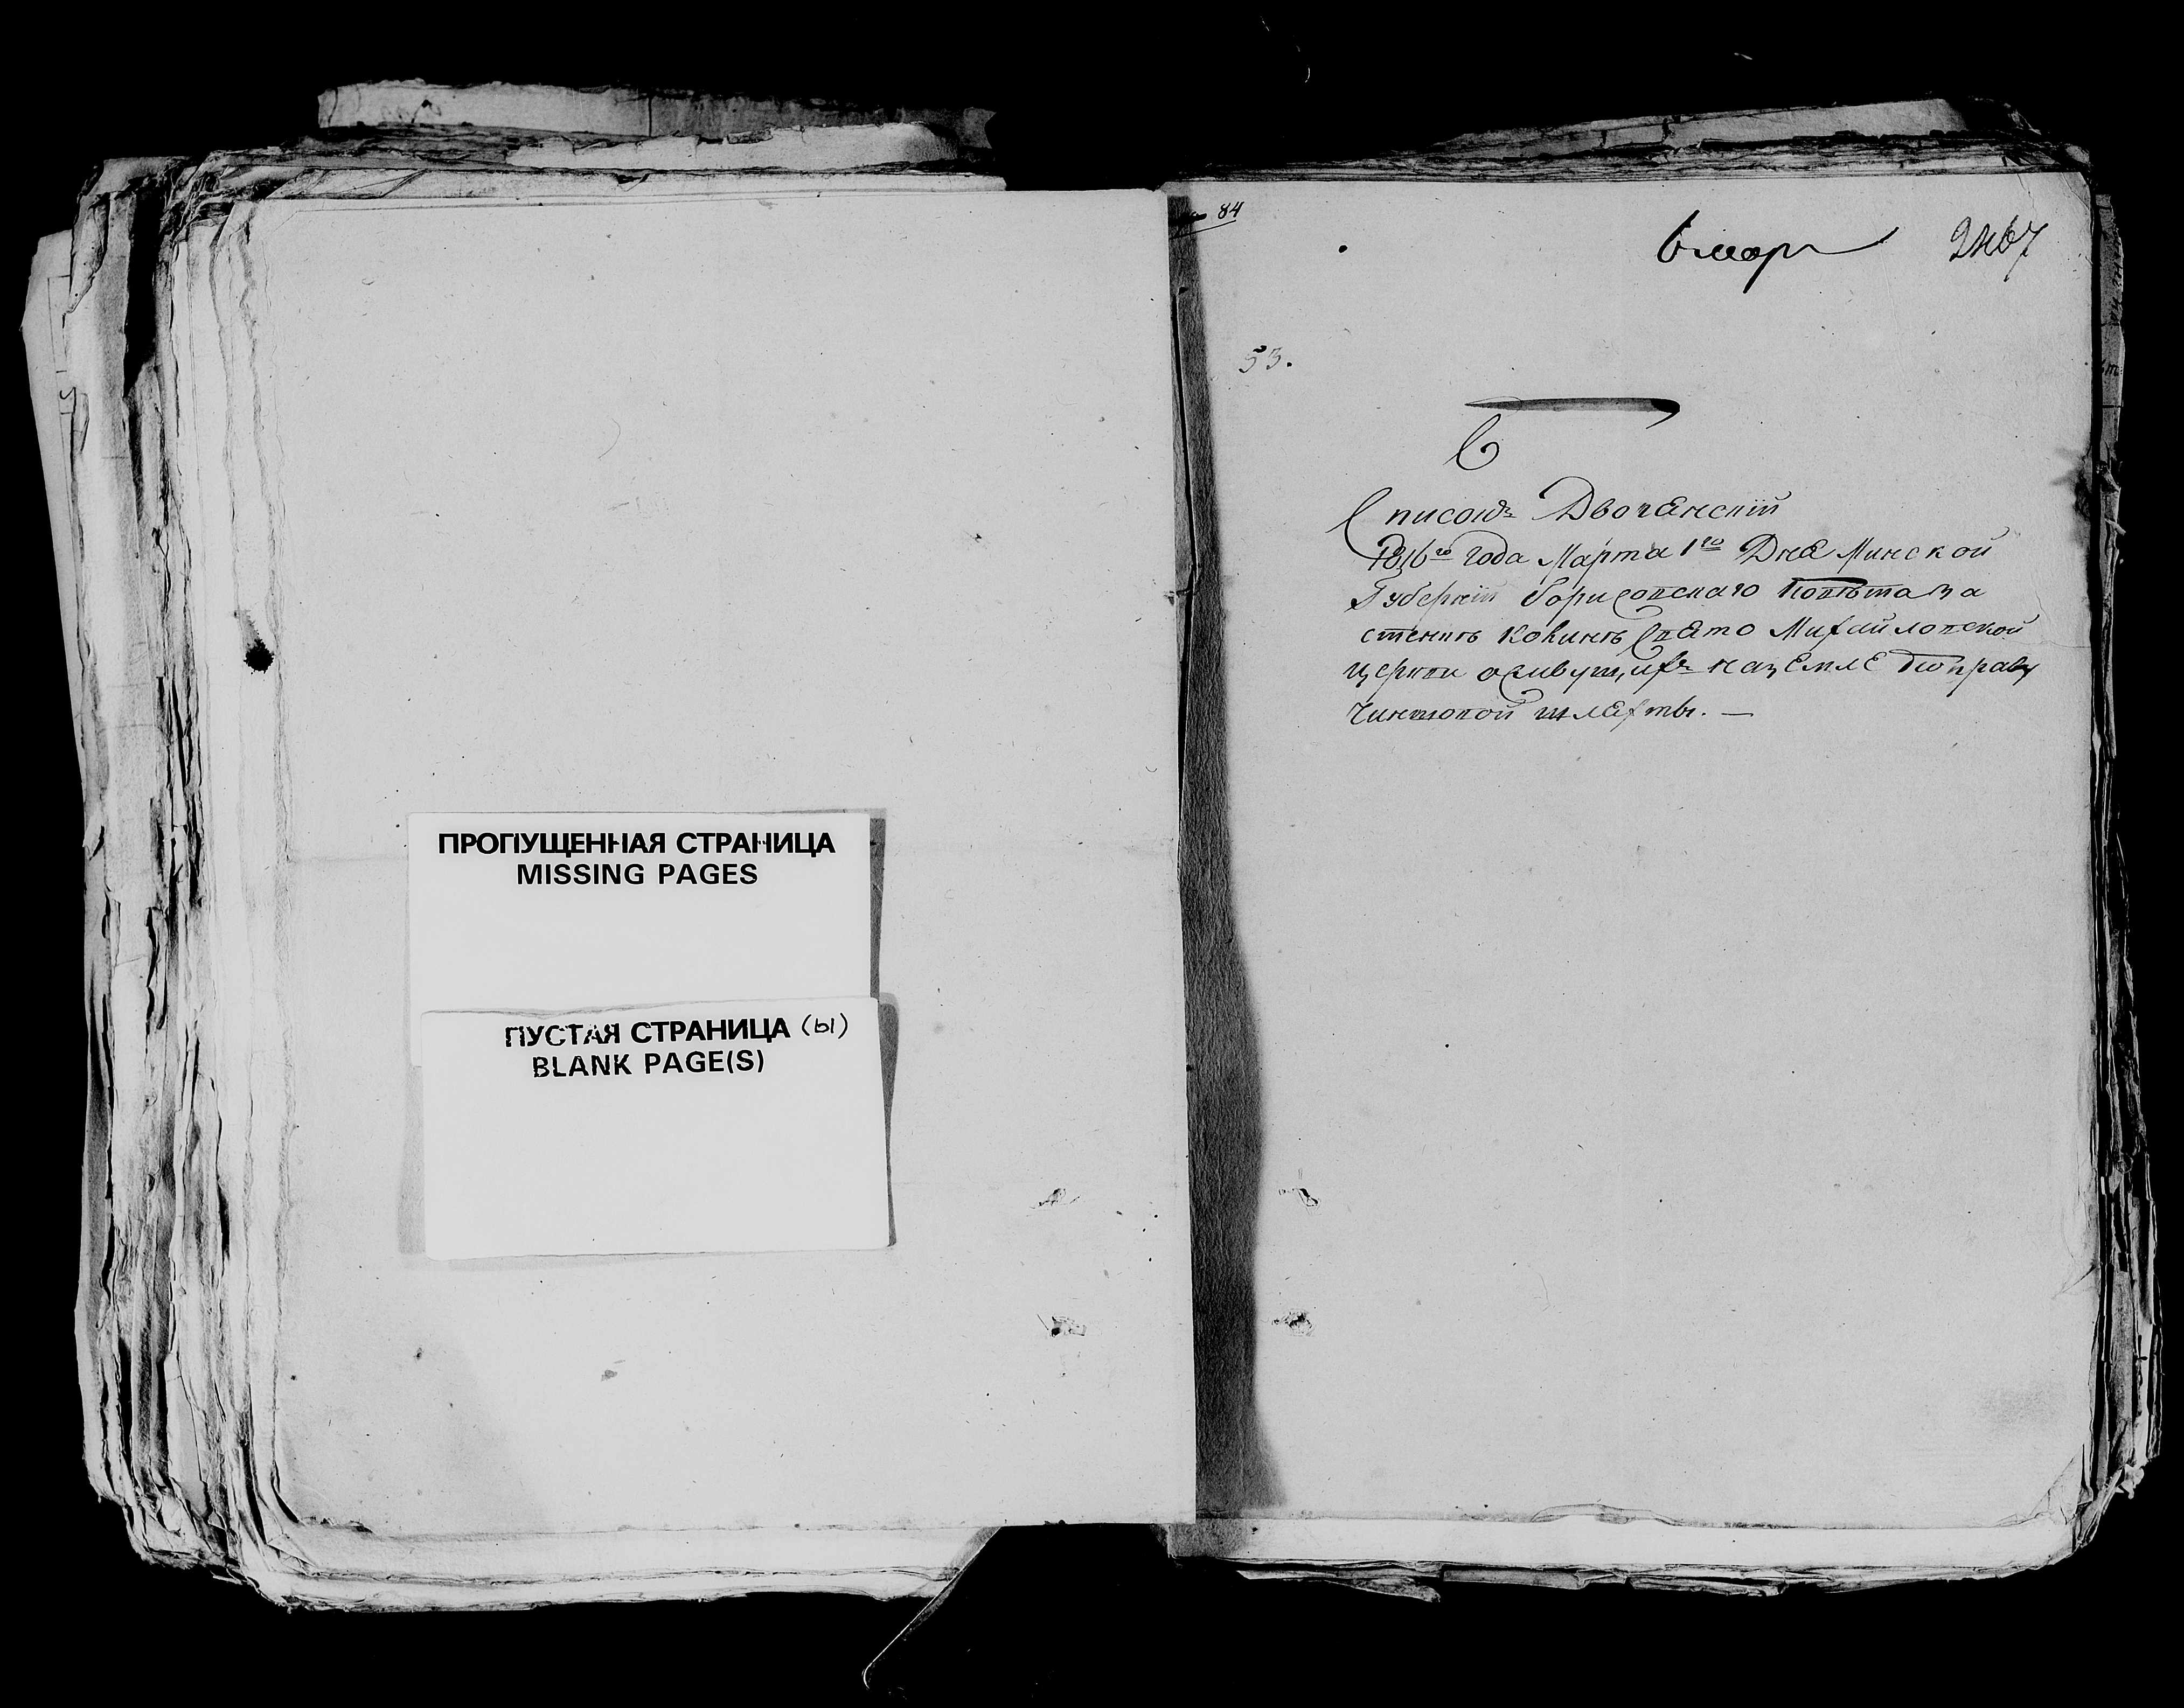 ПРОПУЩЕННАЯ СТРАНИЦА
MISSING PAGES
ПУСТАЯ СТРАНИЦА (ы)
BLANK PAGE(S)
84
53.
С
Списокъ Дворенскій
1816го года Марта 1го Дня Минской
Губерніи Борисовского Повѣта За
стенкѣ Свято Михайловской
церкви живущихъ на Земле по праву
Чиншовой шляхты. —